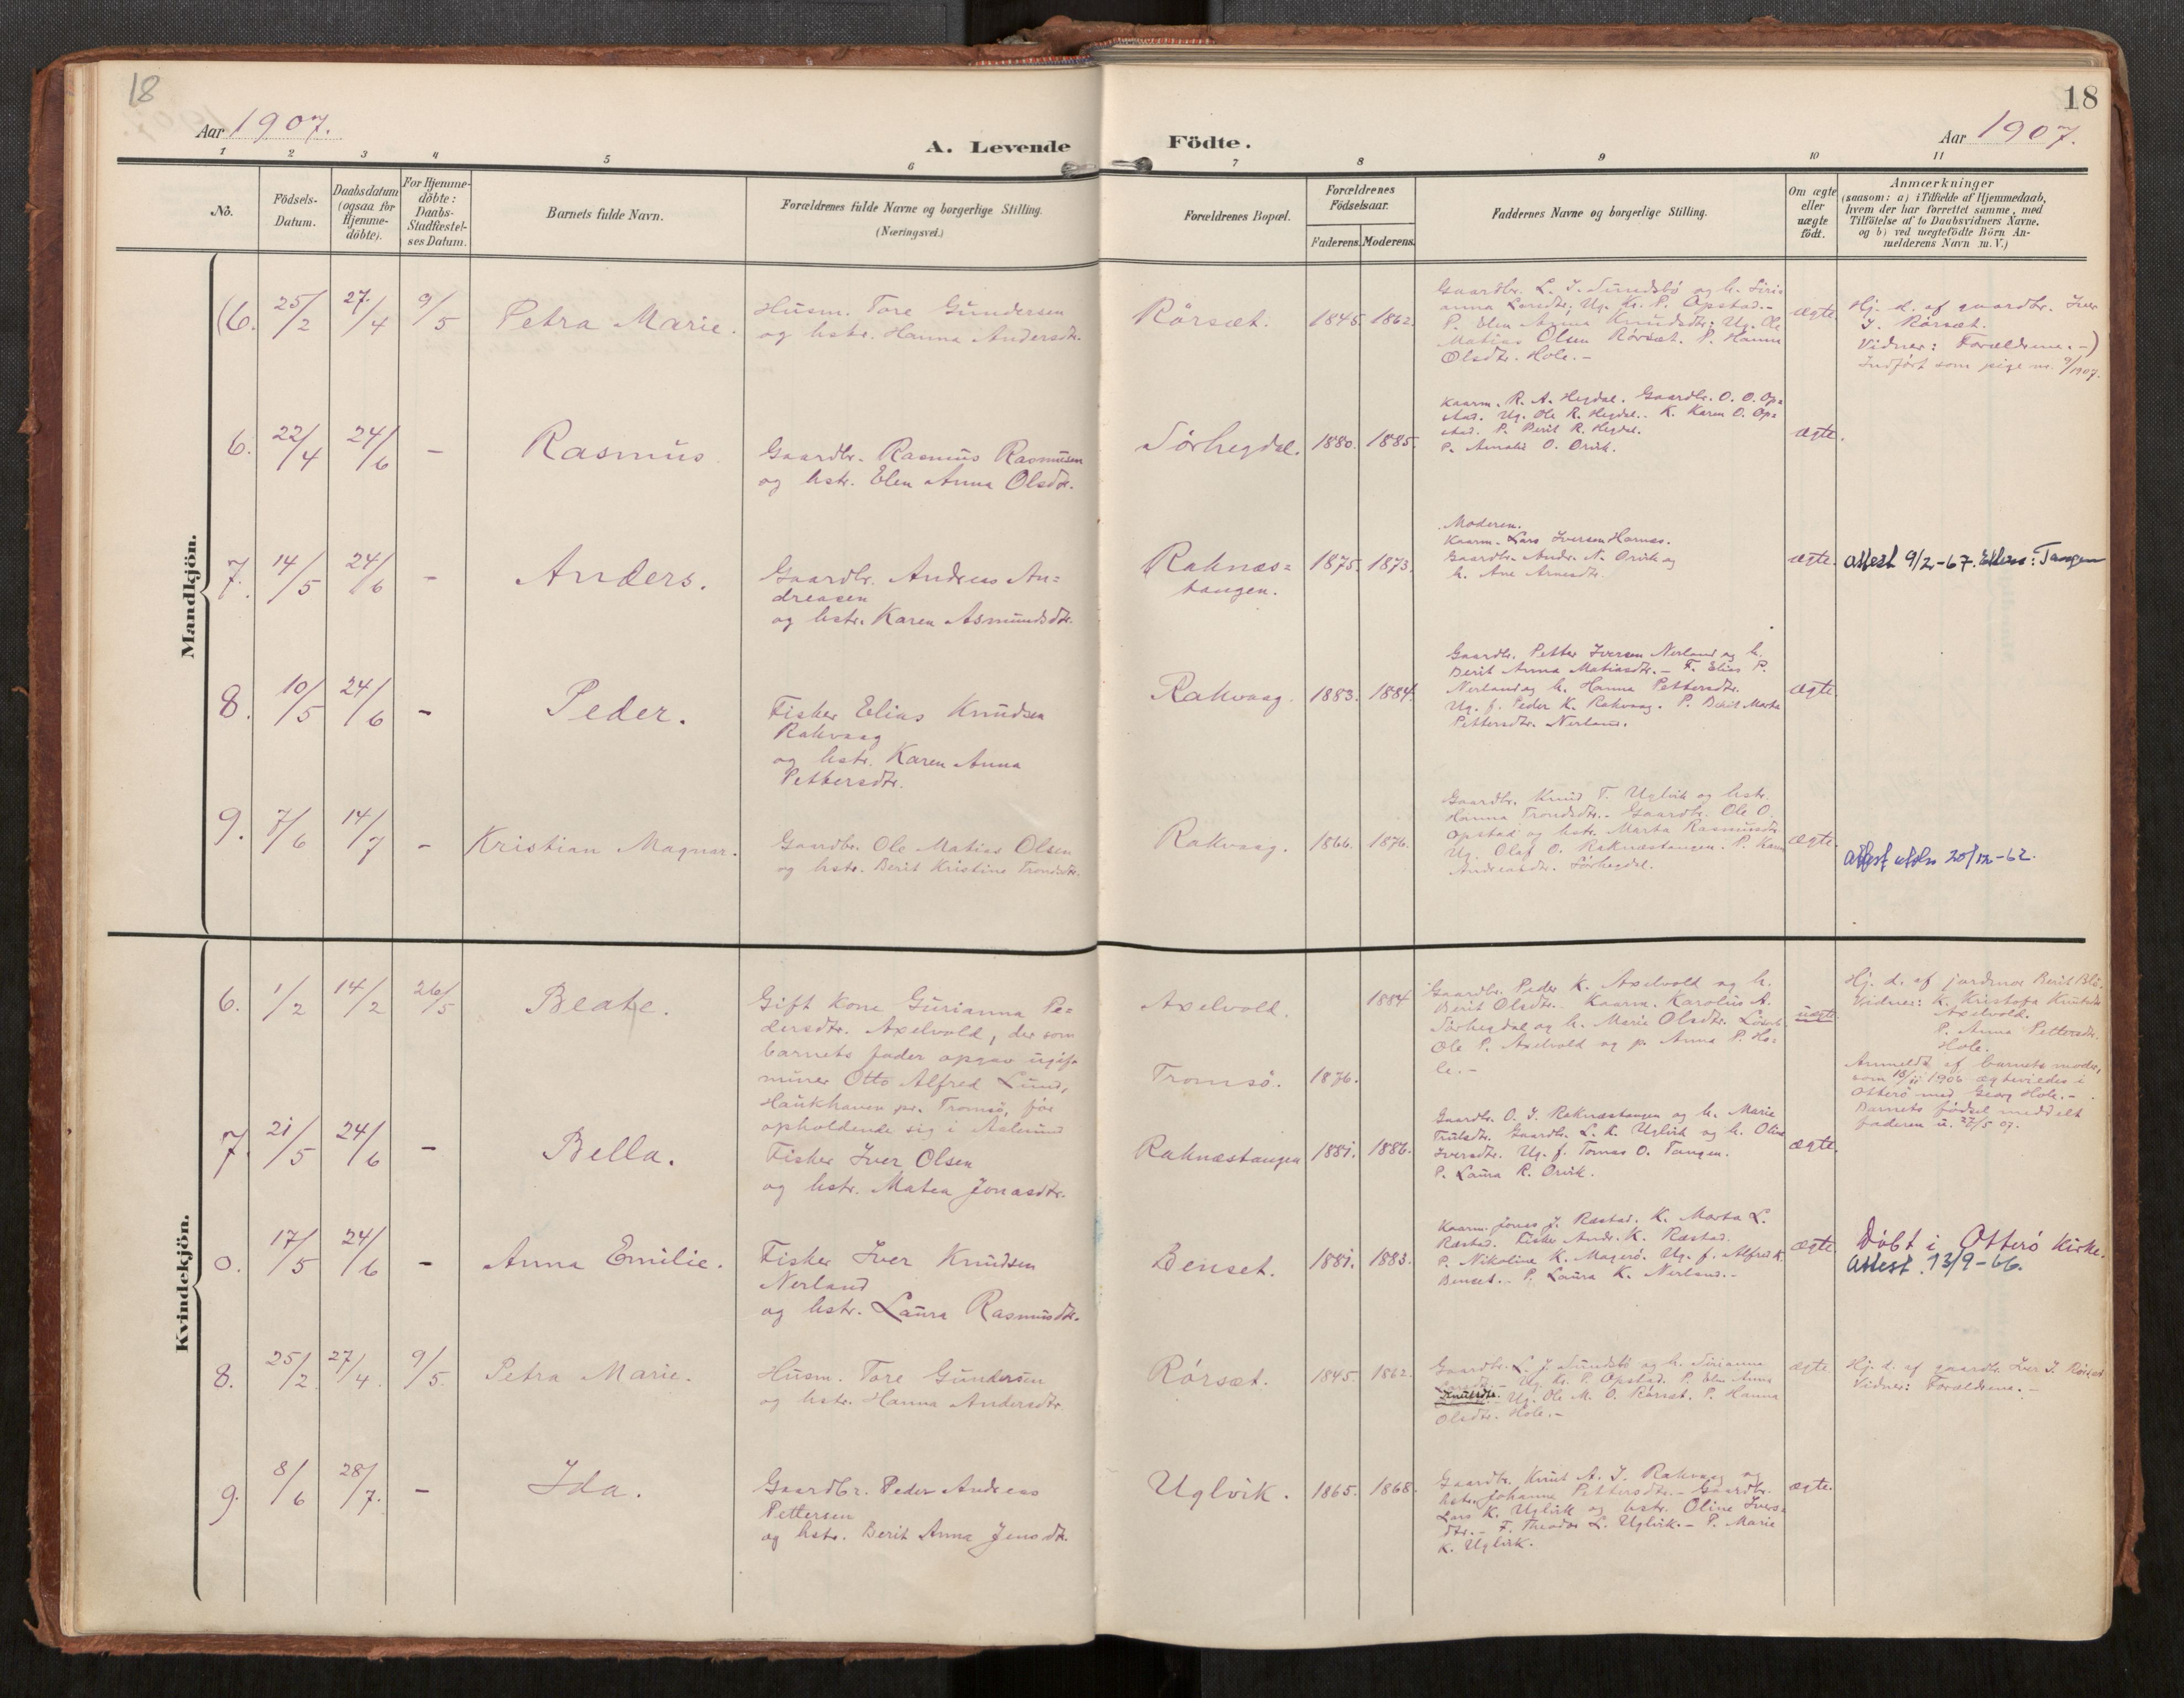 18
Aar 1907.
A. Levende
1 2 3 4 5 6
No.
Födsels-
Datum.
Daabsdatum
(ogsaa for
Hjemme-
döbte).
For Hjemme-
döbte:
Daabs-
Stadfæstel-
ses Datum.
Barnets fulde Navn.
Forældrenes fulde Navne og borgerlige Stilling.
(Næringsvei.)
Mandkjön.
(6. 25/2 27/4 9/5 Petra Marie.
Husm. Tore Gundersen
og hstr. Hanna Andersdtr.
6. 22/4 24/6 - Rasmus
Gaardbr. Rasmus Rasmusen
og hstr. Elen Anna Olsdtr.
7. 14/5 24/6 - Anders.
Gaardbr. Andreas An=
dreasen
og hstr. Karen Asmundsdtr.
8. 10/5 24/6 - Peder.
Fisker Elias Knudsen
Rakvaag
og hstr. Karen Anna
Pettersdtr.
9. 7/6 14/7 - Kristian Magnar.
Gaardbr. Ole Matias Olsen
og hstr. Berit Kristine Trondsdtr.
Kvindekjön.
6. 1/2 14/2 26/5 Beate.
Gift Kone Gurianna Pe=
dersdtr. Axelvold, der som
barnets fader opgav ugift
minør Otto Alfred Lund,
Haukhaven pr. Tromsö, før
opholdende sig i Aalesund
7. 21/5 24/6 - Bella.
Fisker Iver Olsen
og hstr. Matea Jonasdtr.
0. 17/5 24/6 - Anna Emilie.
Fisker Iver Knudsen
Nerland
og hstr. Laura Rasmusdtr.
8. 25/2 27/4. 9/5. Petra Marie.
Husm. Tore Gundersen
og hstr. Hanna Andersdtr.
9. 8/6 28/7. - Ida.
Gaardbr. Peder Andreas
Pettersen
og hstr. Berit Anna Jensdtr.
18
Födte.
Aar 1907.
7 8 9 10 11
Forældrenes Bopæl.
Forældrenes
Födselsaar.
Faderens. Moderens.
Faddernes Navne og borgerlige Stilling.
Om ægte
eller
uægte
födt.
Anmærkninger
(saasom: a) i Tilfælde af Hjemmedaab,
hvem der har forrettet samme, med
Tilföielse af to Daabsvidners Navne.
og b) ved uægtefödte Börn An-
melderens Navn m. V.)
Rörsæt. 1845. 1862.
Gaardbr. L. J. Sundsbö og h. Siri=
anna Larsdtr, Ug. Kr. P. Opstad.-
P. Elen Anna Knudsdtr; Ug. Ole
Matias Olsen Rörsæt. P. Hanna
Olsdtr. Hole.-
ægte.
Hj. d. af gaardbr. Iver
I. Rörsæt.
Vidner: Forældrene.-)
Indført som pige no. 9/1907.
Sørhegdal. 1880. 1885.
Kaarm. R. A. Hegdal. Gaardbr. O. O. Op=
stad. Ug. Ole R. Hegdal. K. Karen O. Op=
stad. P. Berit R. Hegdal.
P. Amalie O. Orvik.
ægte.
Raknæs=
tangen. 1875. 1873.
Moderen.
Kaarm. Lars Iversen Harnæs.
Gaardbr. Andr. N. Orvik og
h. Ane Arnesdtr.
ægte. Attest 9/2-67. Tangen
Rakvaag. 1883. 1884.
Gaardbr. Petter Iversen Nerland og h.
Berit Anna Matiasdtr. - F. Elias P.
Nerland og h. Hanna Pettersdtr.
Ug. f. Peder K. Rakvaag. P. Berit Marta
Pettersdtr. Nerland.
ægte.
Rakvaag. 1866. 1876.
Gaardbr. Knud T. Uglvik og hstr.
Hanna Trondsdtr.- Gaardbr. Ole O.
Opstad og hstr. Marta Rasmusdtr.
Ug. Olaf O. Raknæstangen. P. Karen
Andreasdtr. Sørhegdal.
ægte. Attest 20/12-62.
Axelvold. 1884
Tromsö. 1876.
Gaardbr. Peder K. Axelvold og h.
Berit Olsdtr. Kaarm. Karolius A.
Sørhegdal og h. Marie Olsdtr.
Ole P. Axelvold og p. Anna P. Ho=
le.-
uægte
Hj. d. af jordmor Berit
Vidner: K. Kristofa Knutsdtr
Axelvold.
P. Anna Pettersdtr.
Hole.
Anmeldt af barnets moder,
som 18/11 1906 ægtevledes i
Otterö med Georg Hole.-
Barnets födsel meddelt
faderen u. 27/5 07.
Raknæstangen 1881. 1886.
Gaardbr. O. I. Raknæstangen og h. Marie
Trulsdtr. Gaardbr. L. K. Uglvik og h. Oline
Iversdtr. Ug. f. Tomas O. Tangen.
P. Laura R. Orvik.
ægte.
Benset. 1881. 1883.
Kaarm. Jonas J. Ræstad. K. Marta L.
Ræstad. Fisker Andr. K. Ræstad.
P. Nikoline K. Magerö. Ug. f. Alfred K.
Benset. P. Laura K. Nerland.-
ægte
Döbt i Otterö Kirke.
Attest. 13/9-66.
Rörsæt. 1845. 1862.
Gaardbr. L. J. Sundsbö og h. Sirianna
Larsdtr.- Ug. Kr. P. Opstad. P. Elen Anna
Knutsdtr.- Ug. Ole M. O. Rörsæt. P. Hanna
Olsdtr. Hole.-
ægte
Hj. d. af gaardbr. Iver I. Rörsæt
Vidner: Forældrene.-
Uglvik. 1865. 1868.
Gaardbr. Knut A. I. Rakvaag og
hstr. Johanna Pettersdtr.- Gaardbr.
Lars K. Uglvik og hstr. Oline Ivers=
dtr.- F. Theodor L. Uglvik.- P. Marie
K. Uglvik.
ægte.